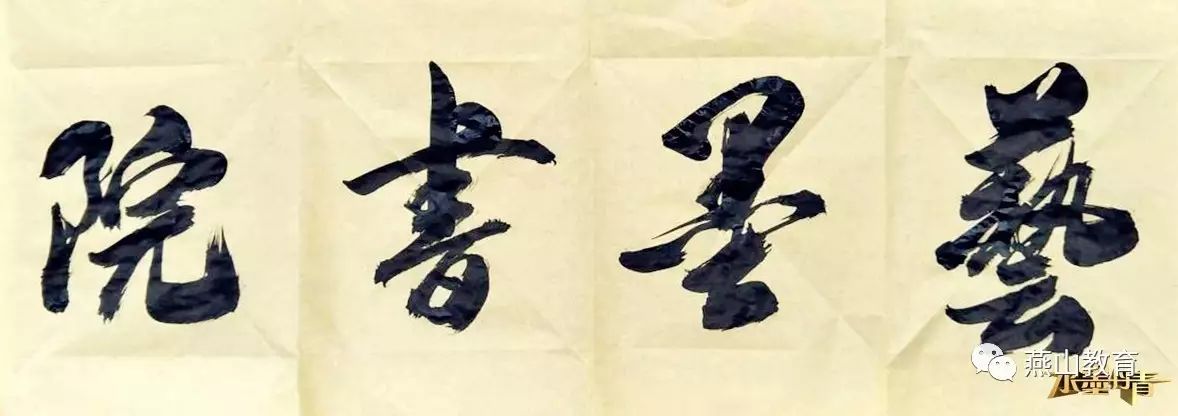 藝墨書院
燕山教育
水墨丹青